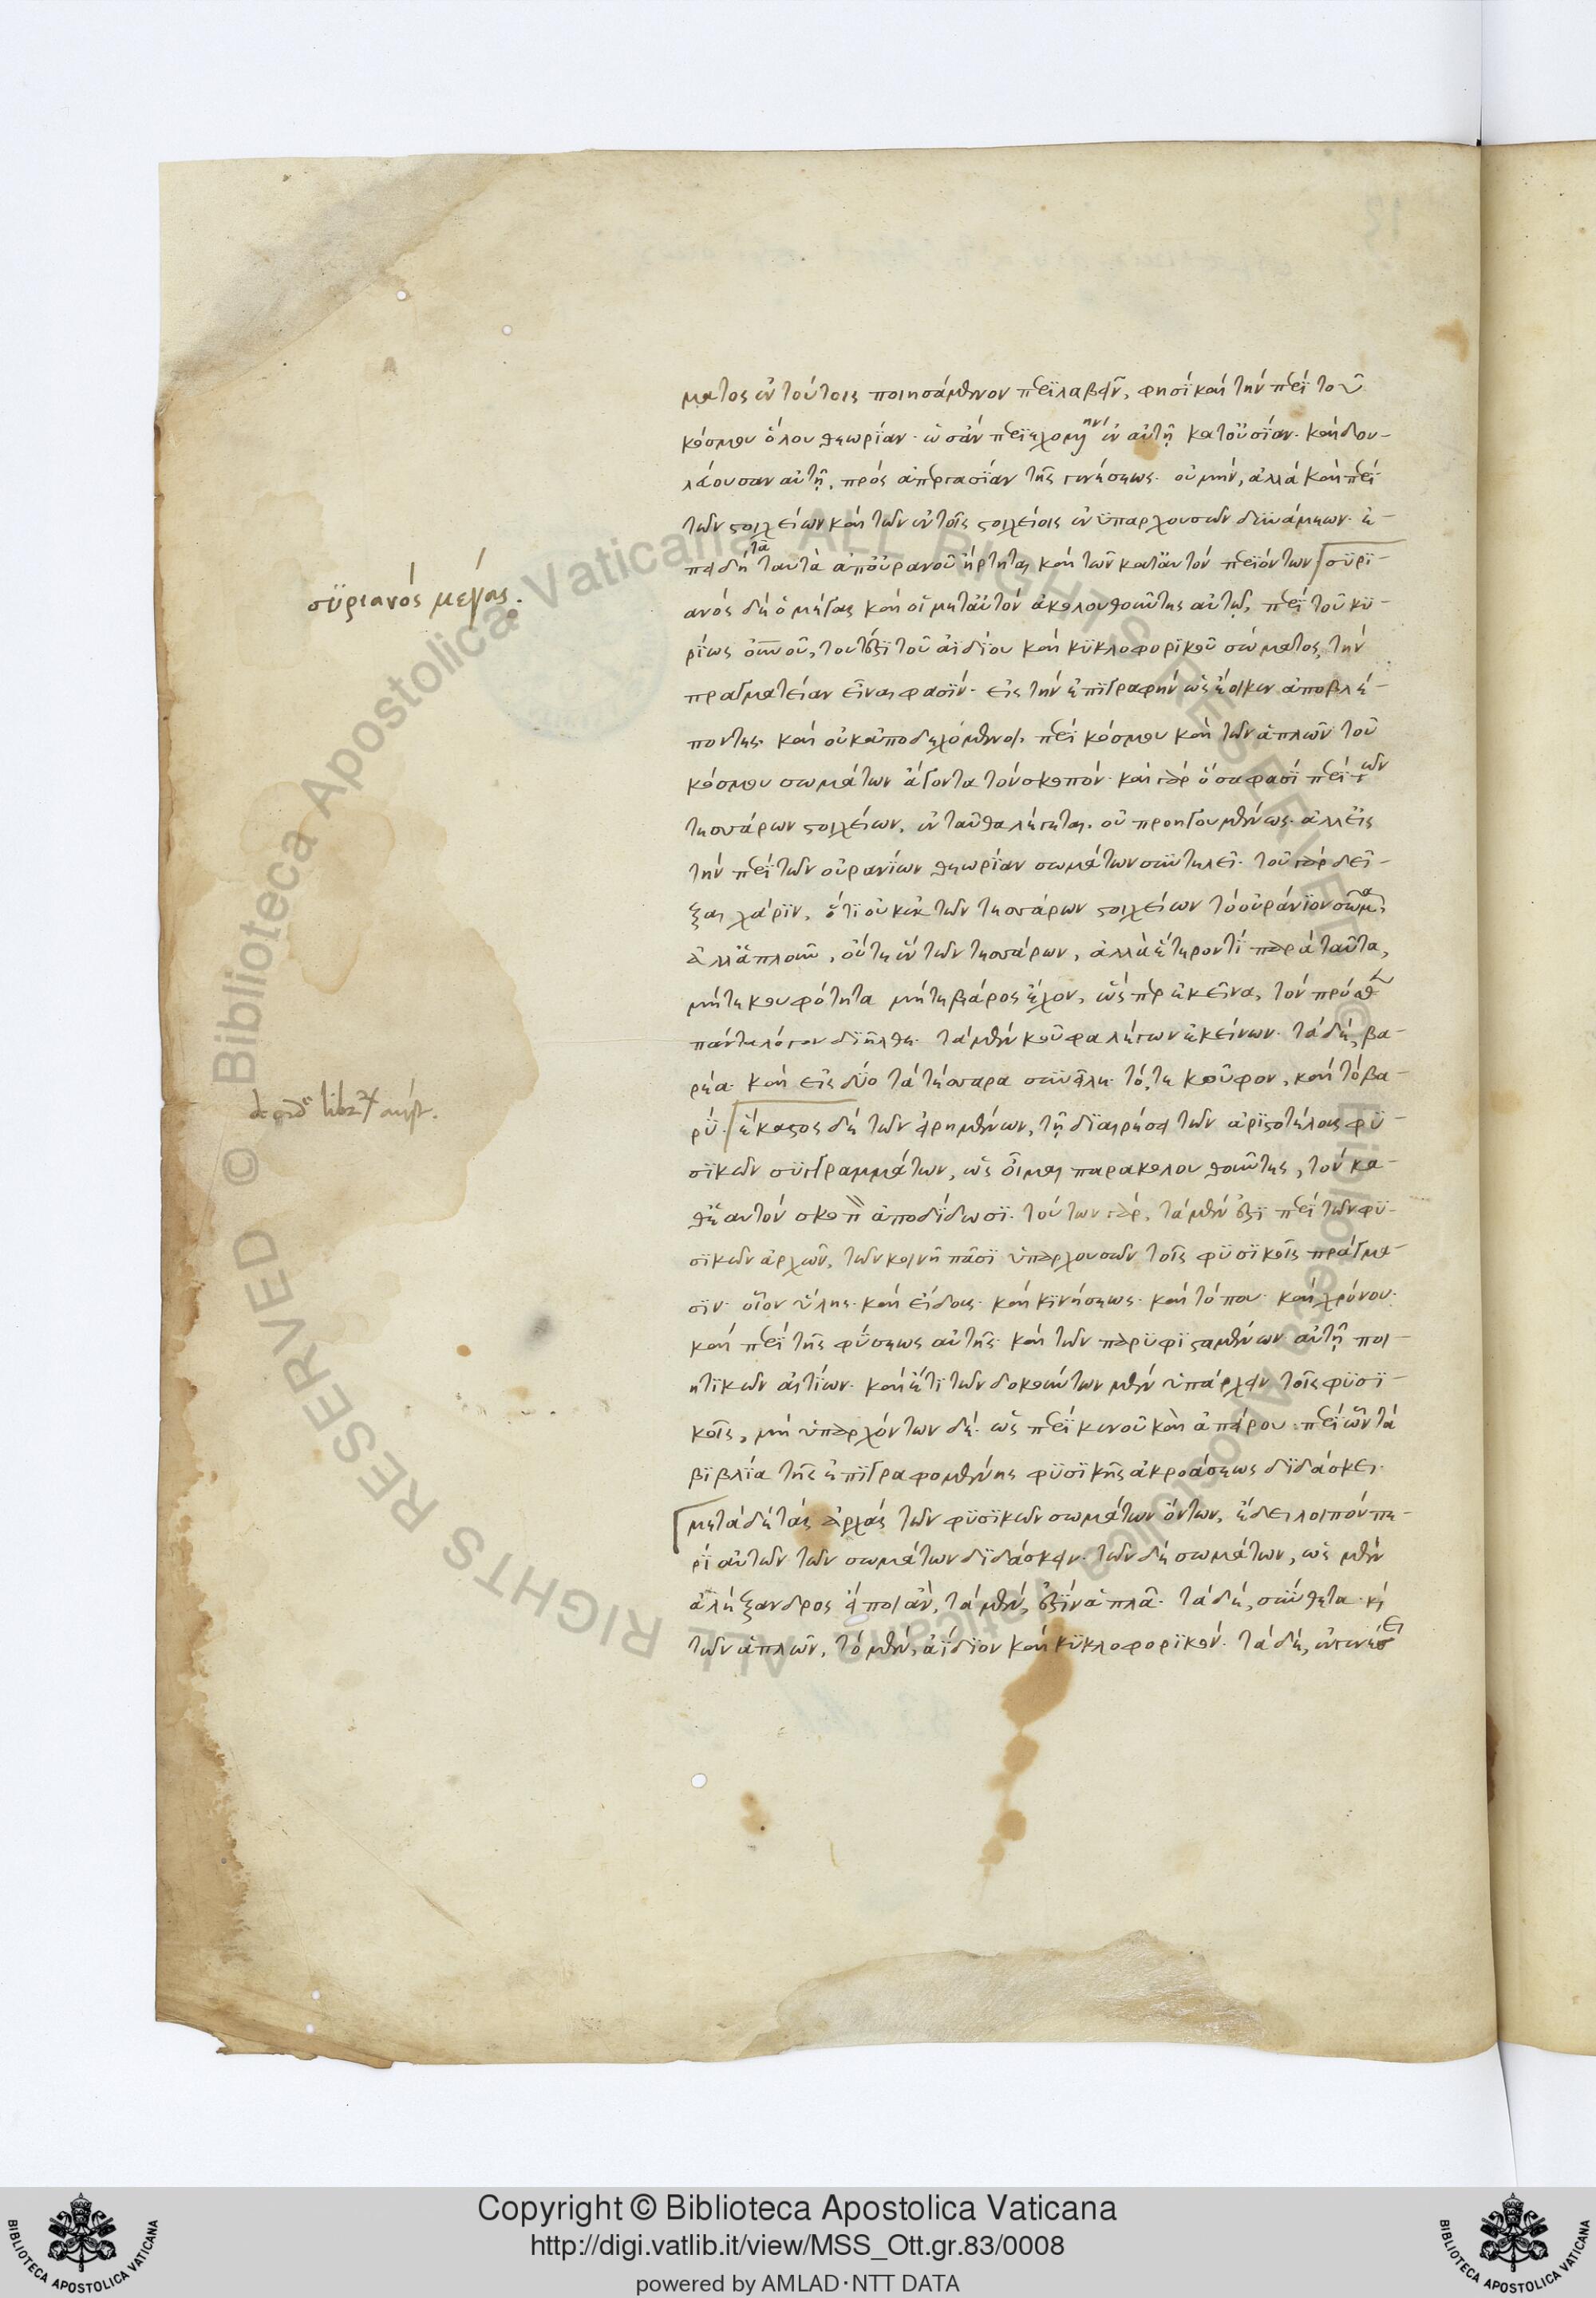 ματος ἐν τούτοις ποιησάμενον περϊλαβεῖν, φησὶ καὶ τὴν περὶ τοῦ
κόσμου ὅλου θεωρΐαν· ὡς ἂν περϊεχομένην ἐν αὐτῇ κατοὐσΐαν· καὶ δου-
λεύουσαν αὐτῇ, πρὸς ἀπεργασΐαν τῆς γενέσεως· οὐ μὴν, ἀλλὰ καὶ περὶ
τῶν στοιχείων καὶ τῶν ἐν τοῖς στοιχείοις ἐνϋπαρχουσῶν δυνάμεων· ἐ-
πειδὴ ταῦτα ἀποὐρανοῦ ἤρτηται καὶ τῶν κατ' αὐτὸν περϊόντων σϋρϊ-
ανὸς δὲ ὁ μέγας καὶ οἱ μετ' αὐτὸν ἀκολουθοῦντες αὐτῷ, περὶ τοῦ κυ-
ρΐως οὐνοῦ, τουτέστι τοῦ ἀϊδΐου καὶ κϋκλοφορϊκοῦ σώματος, τὴν
πραγματείαν εἶναι φασΐν· εἰς τὴν ἐπϊγραφὴν ὡς ἔοικεν ἀποβλέ-
ποντες· καὶ οὐκ ἀποδεχόμενοι, περὶ κόσμου καὶ τῶν ἁπλῶν τοῦ
κόσμου σωμάτων ἄγοντα τὸν σκοπόν· καὶ γὰρ ὅσα φασὶ περὶ τῶν
τεσσάρων στοιχείων, ἐνταῦθα λέγεται, οὐ προηγουμένως· ἀλλ' εἰς
τὴν περὶ τῶν οὐρανΐων θεωρΐαν σωμάτων συντελεῖ· τοῦ γὰρ δεῖ-
ξαι χάρϊν, ὅτϊ οὐκ ἐκ τῶν τεσσάρων στοιχείων τὸ οὐράνϊον σῶμα,
ἀλλ' ἁπλοῦν, οὔτε ἓν τῶν τεσσάρων, ἀλλὰ ἕτερον τὶ παρὰ ταῦτα,
μήτε κουφότητα μήτε βάρος ἔχον, ὥσπερ ἐκεῖνα, τὸν πρὸς
πάντα λόγον διῆλθε· τὰ μὲν κοῦφα λέγων ἐκείνων· τὰ δὲ, βα-
ρέα· καὶ εἰς δύο τὰ τέσσαρα συνῆλε· τό, τε κοῦφον, καὶ τὸ βα-
ρΰ· ἕκαστος δὲ τῶν εἰρημένων, τῇ δϊαιρέσει τῶν ἀρϊστοτέλους φϋ-
σϊκῶν σϋγγραμμάτων, ὡς οἶμαι παρακολουθοῦντες, τὸν κα-
θέαυτὸν σκοπὸν ἀποδΐδωσϊ· τούτων γὰρ, τὰ μὲν ἐστϊ περὶ τῶν φϋ-
σϊκῶν ἀρχῶν, τῶν κοινῇ πᾶσϊ ὑπαρχουσῶν τοῖς φϋσϊκοῖς πράγμα-
σϊν· οἷον ὕλης· καὶ εἴδους· καὶ κϊνήσεως· καὶ τόπου· καὶ χρόνου·
καὶ περὶ τῆς φΰσεως αὐτῆς· καὶ τῶν παρϋφϊσταμένων αὐτῇ ποι-
ητϊκῶν αἰτΐων· καὶ ἔτϊ τῶν δοκούντων μὲν ὑπάρχειν τοῖς φϋσϊ-
κοῖς, μὴ ὑπαρχόντων δέ· ὡς περὶ κενοῦ καὶ ἀπείρου· περὶ ὧν τὰ
βϊβλΐα τῆς ἐπϊγραφομένης φϋσϊκῆς ἀκροάσεως δϊδάσκει·
μετὰ δὲ τὰς ἀρχὰς τῶν φϋσϊκῶν σωμάτων ὄντων, ἔδει λοιπὸν πε-
ρὶ αὐτῶν τῶν σωμάτων δϊδάσκειν· τῶν δὲ σωμάτων, ὡς μὲν
ἀλέξανδρος εἴποι ἂν, τὰ μὲν, ἐστὶν ἁπλᾶ· τὰ δὲ, σύνθετα· καὶ
τῶν ἁπλῶν, τὸ μὲν, ἀΐδϊον καὶ κϋκλοφορϊκόν· τὰ δὲ, ἐν γενέσει
σϋριανός μέγας.
Copyright © Biblioteca Apostolica Vaticana
http://digi.vatlib.it/view/MSS_Ott.gr.83/0008
powered by AMLAD·NTT DATA